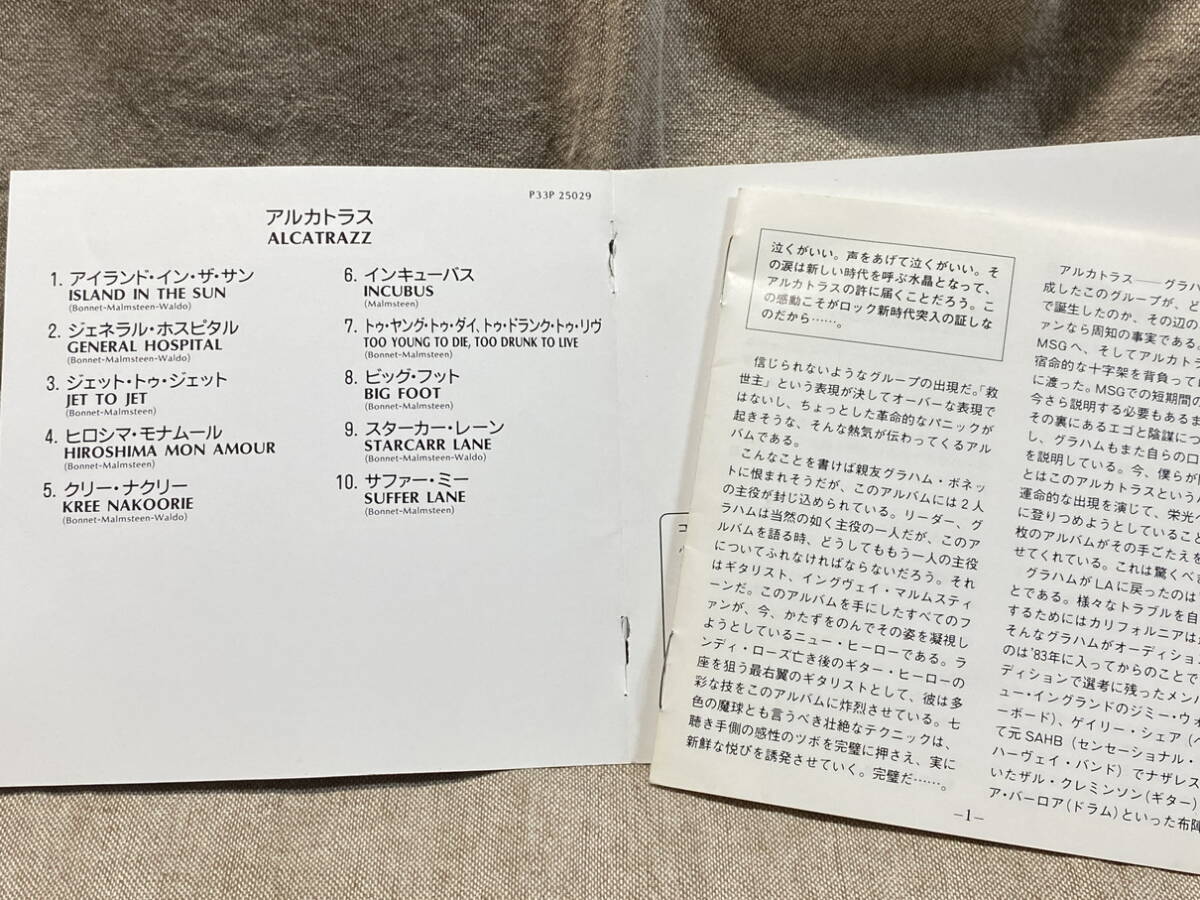 P33P 25029
アルカトラス
ALCATRAZZ
1. アイランド・イン・ザ・サン
ISLAND IN THE SUN
(Bonnet-Malmsteen-Waldo)
2. ジェネラル・ホスピタル
GENERAL HOSPITAL
(Bonnet-Malmsteen-Waldo)
3. ジェット・トゥ・ジェット
JET TO JET
(Bonnet-Malmsteen)
4. ヒロシマ・モナムール
HIROSHIMA MON AMOUR
(Bonnet-Malmsteen)
5. クリー・ナクリー
KREE NAKOORIE
(Bonnet-Malmsteen-Waldo)
6. インキューバス
INCUBUS
(Malmsteen)
7. トゥ・ヤング・トゥ・ダイ、トゥ・ドランク・トゥ・リヴ
TOO YOUNG TO DIE, TOO DRUNK TO LIVE
(Bonnet-Malmsteen)
8. ビッグ・フット
BIG FOOT
(Bonnet-Malmsteen)
9. スターカー・レーン
STARCARR LANE
(Bonnet-Malmsteen-Waldo)
10. サファー・ミー
SUFFER LANE
(Bonnet-Malmsteen)
泣くがいい。声をあげて泣くがいい。そ
の涙は新しい時代を呼ぶ水晶となって、
アルカトラスの許に届くことだろう。こ
の感動こそがロック新時代突入の証しな
のだから……。
信じられないようなグループの出現だ。「救
世主」という表現が決してオーバーな表現で
はないし、ちょっとした革命的なパニックが
起きそうな、そんな熱気が伝わってくるアル
バムである。
こんなことを書けば親友グラハム・ボネッ
トに恨まれそうだが、このアルバムには2人
の主役が封じ込められている。リーダー、グ
ラハムは当然の如く主役の一人だが、このア
ルバムを語る時、どうしてももう一人の主役
についてふれなければならないだろう。それ
はギタリスト、イングヴェイ・マルムスティ
ーンだ。このアルバムを手にしたすべてのフ
ァンが、今、かたずをのんでその姿を凝視し
ようとしているニュー・ヒーローである。ラ
ンディ・ローズ亡き後のギター・ヒーローの
座を狙う最右翼のギタリストとして、彼は多
彩な技をこのアルバムに炸烈させている。七
色の魔球とも言うべき壮絶なテクニックは、
聴き手側の感性のツボを完璧に押さえ、実に
新鮮な悦びを誘発させていく。完璧だ……。
アルカトラス――グラハ
成したこのグループが、ど
で誕生したのか、その辺の
ァンなら周知の事実である。
MSGへ、そしてアルカトラ
宿命的な十字架を背負ってい
に渡った。MSGでの短期間の
今さら説明する必要もあるま
その裏にあるエゴと陰謀につ
し、グラハムもまた自らの口
を説明している。今、僕らが
とはこのアルカトラスという
運命的な出現を演じて、栄光へ
に登りつめようとしていること
枚のアルバムがその手ごたえを
せてくれている。これは驚くべき
グラハムがLAに戻ったのは
とである。様々なトラブルを自
するためにはカリフォルニアは
そんなグラハムがオーディション
のは'83年に入ってからのことで
ディションで選考に残ったメンバ
ュー・イングランドのジミー・ウォ
ーボード)、ゲイリー・シェア(ベ
て元SAHB(センセーショナル・
ハーヴェイ・バンド)でナザレス
いたザル・クレミンソン(ギター)
ア・バーロア(ドラム)といった布陣
–1–